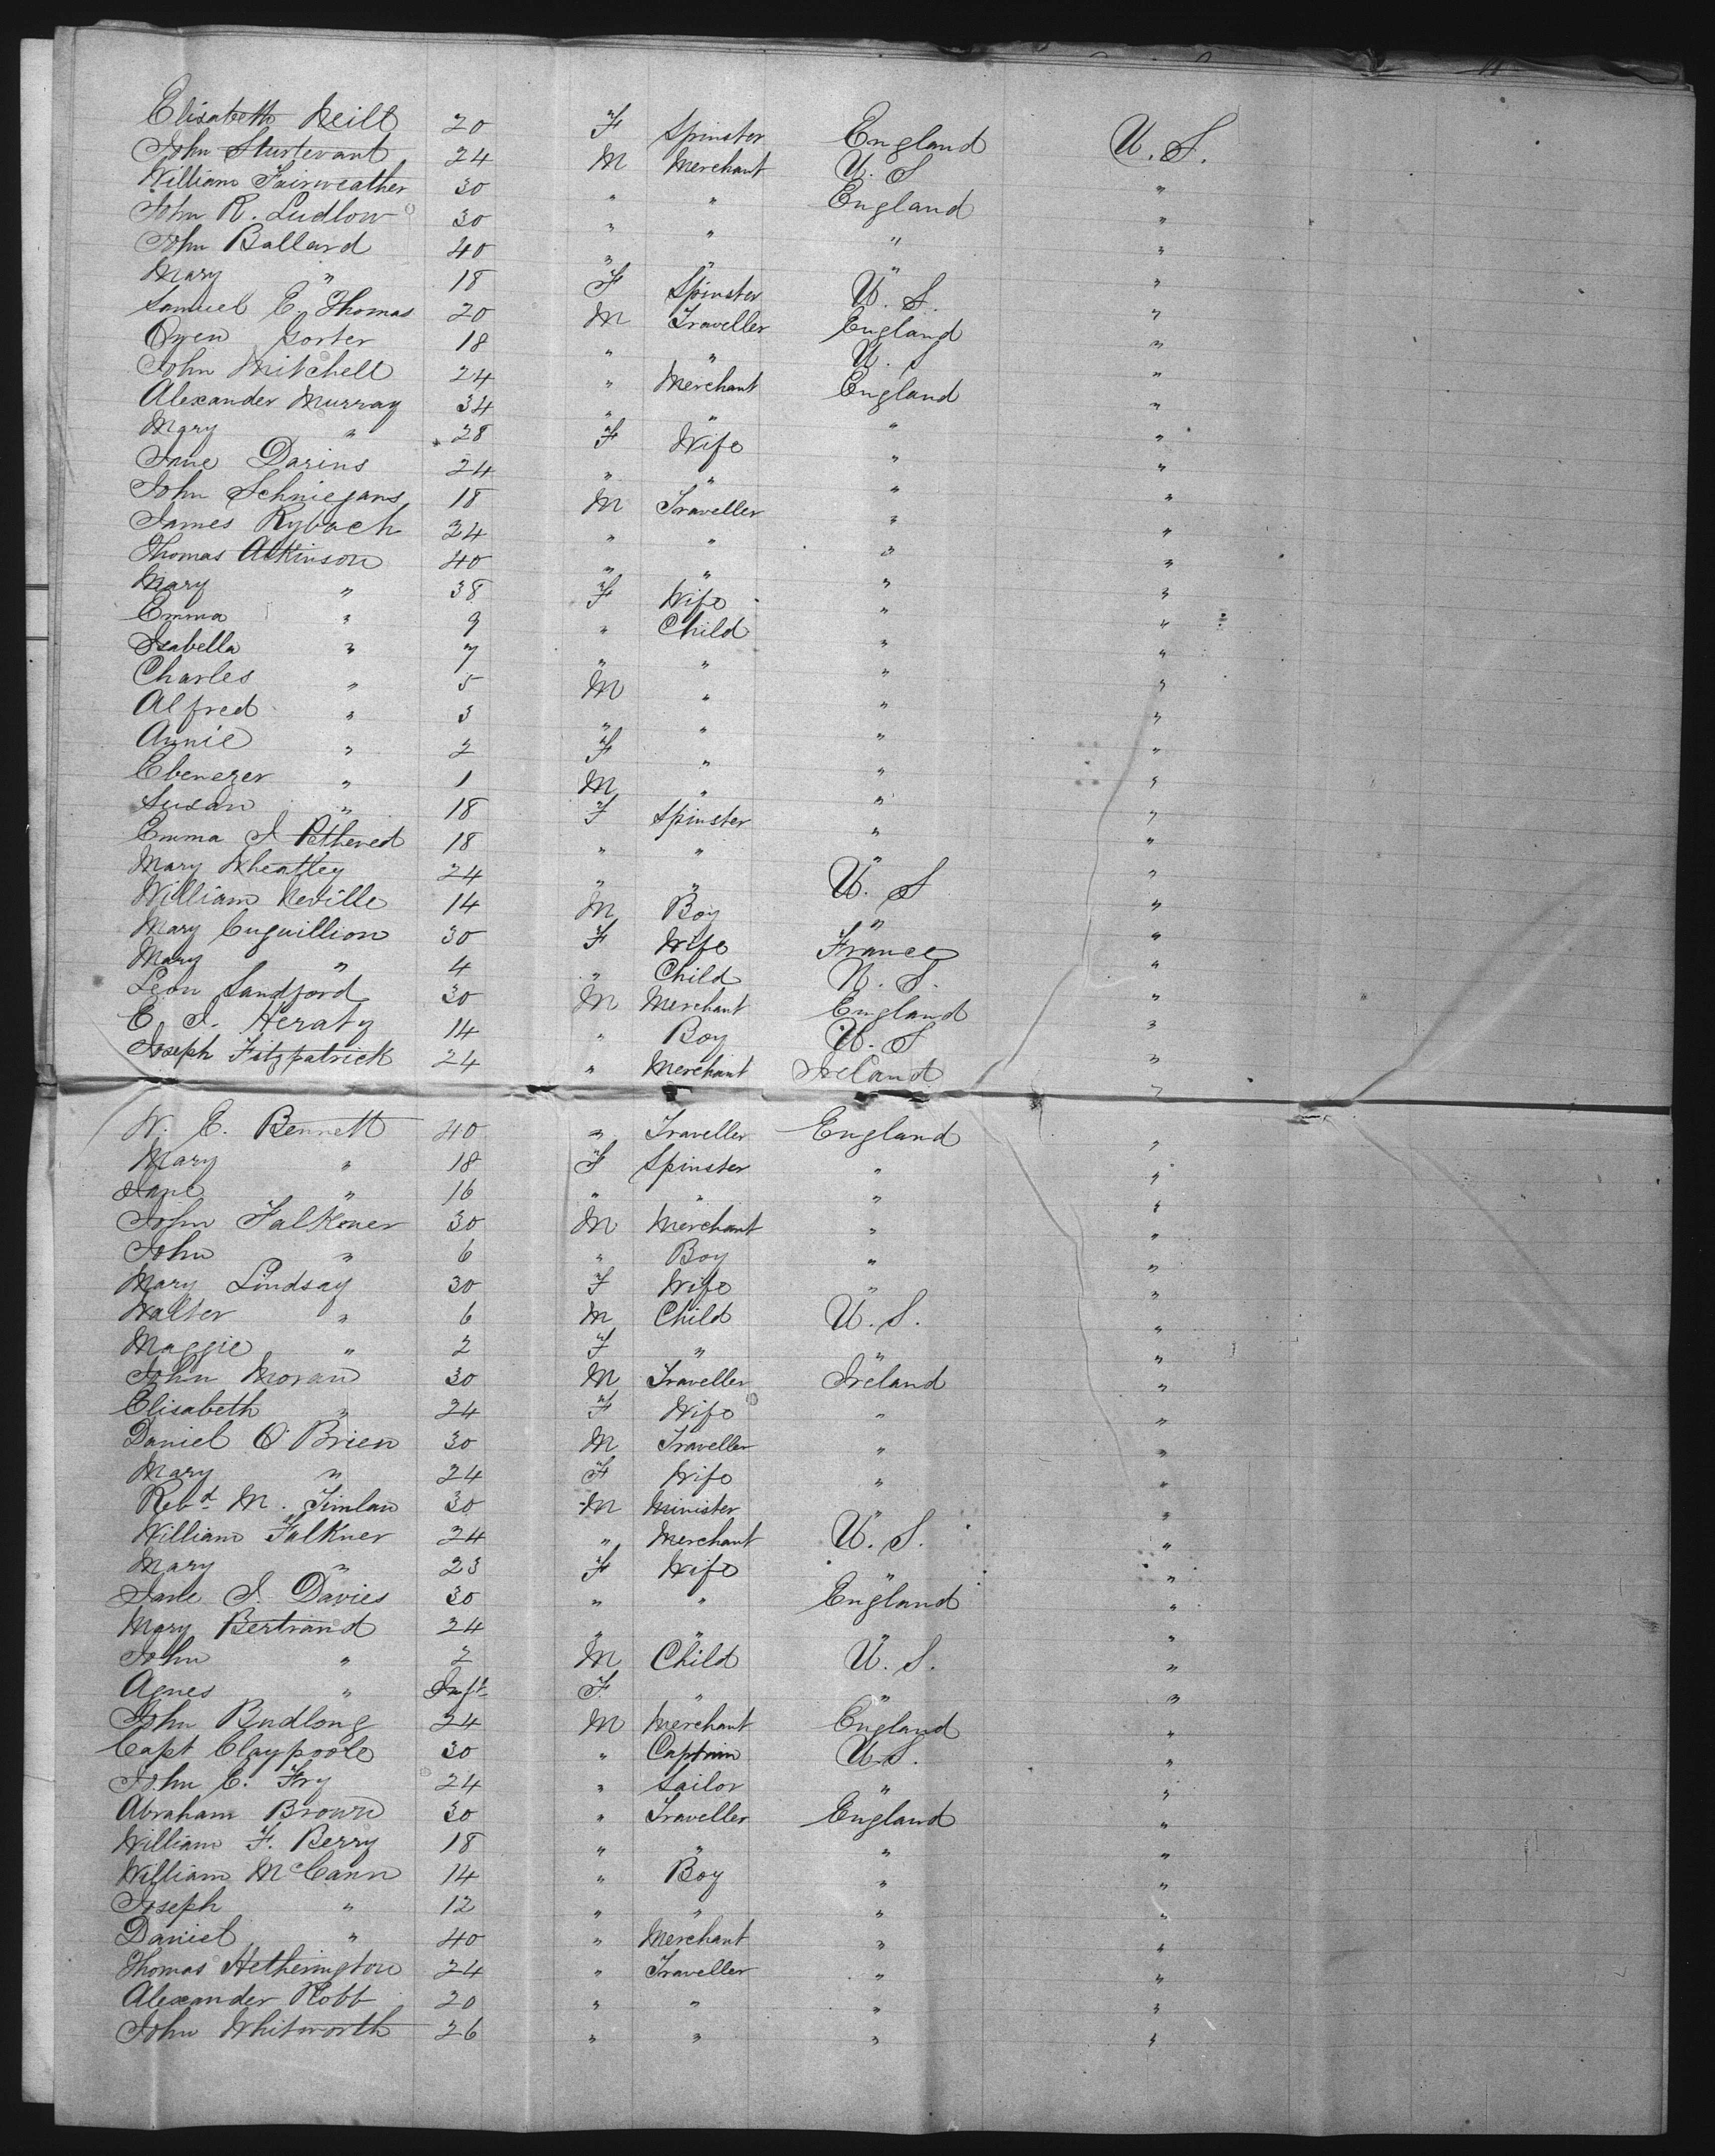 Elisabeth Neill 20 F Spinster England U.S.
John Sturtevant 24 M Merchant U.S "
William Fairweather 30 " " England "
John R. Ludlow 30 " " " "
John Ballard 40 " " " "
Mary " 18 F Spinster U.S. "
Samuel E. Thomas 20 M Traveller England "
Owen Gorter 18 " " U.S "
John Mitchell 24 " Merchant England "
Alexander Murray 34 " " " "
Mary " 28 F Wife " "
Jane Darins 24 " " " "
John Schniegans 18 M Traveller " "
James Rybach 24 " " " "
Thomas Atkinson 40 " " " "
Mary " 38 F Wife " "
Emma " 9 " Child " "
Isabella " 7 " " " "
Charles " 5 M " " "
Alfred " 3 " " " "
Annie " 2 F " " "
Ebenezer " 1 M " " "
Susan " 18 F Spinster " "
Emma J Pethered 18 " " " "
Mary Wheatley 24 " " U.S "
William Neville 14 M Boy " "
Mary Cuguillion 30 F Wife France "
Mary " 4 " Child U.S. "
Leon Sandford 30 M Merchant England "
E. J. Heraty 14 " Boy U.S "
Joseph Fitzpatrick 24 " Merchant Ireland "
W. E. Bennett 40 " Traveller England "
Mary " 18 F Spinster " "
Jane " 16 " " " "
John Falkoner 30 M Merchant " "
John " 6 " Boy " "
Mary Lindsay 30 F Wife " "
Walter " 6 M Child U.S. "
Maggie " 2 F " " "
John Moran 30 M Traveller Ireland "
Elisabeth " 24 F Wife " "
Daniel O'Brien 30 M Traveller " "
Mary " 24 F Wife " "
Revd. M. Timlan 30 M Minister " "
William Falkner 24 " Merchant U.S. "
Mary " 23 F Wife " "
Jane J. Davies 30 " " England "
Mary Bertrand 24 " " " "
John " 2 M Child U.S. "
Agnes " Inft F " " "
John Budlong 24 M Merchant England "
Capt Claypoole 30 " Captain U.S. "
John C. Fry 24 " Sailor " "
Abraham Brown 30 " Traveller England "
William F. Berry 18 " " " "
William McCann 14 " Boy " "
Joseph " 12 " " " "
Daniel " 40 " Merchant " "
Thomas Hetherington 24 " Traveller " "
Alexander Robb 20 " " " "
John Whitworth 26 " " " "